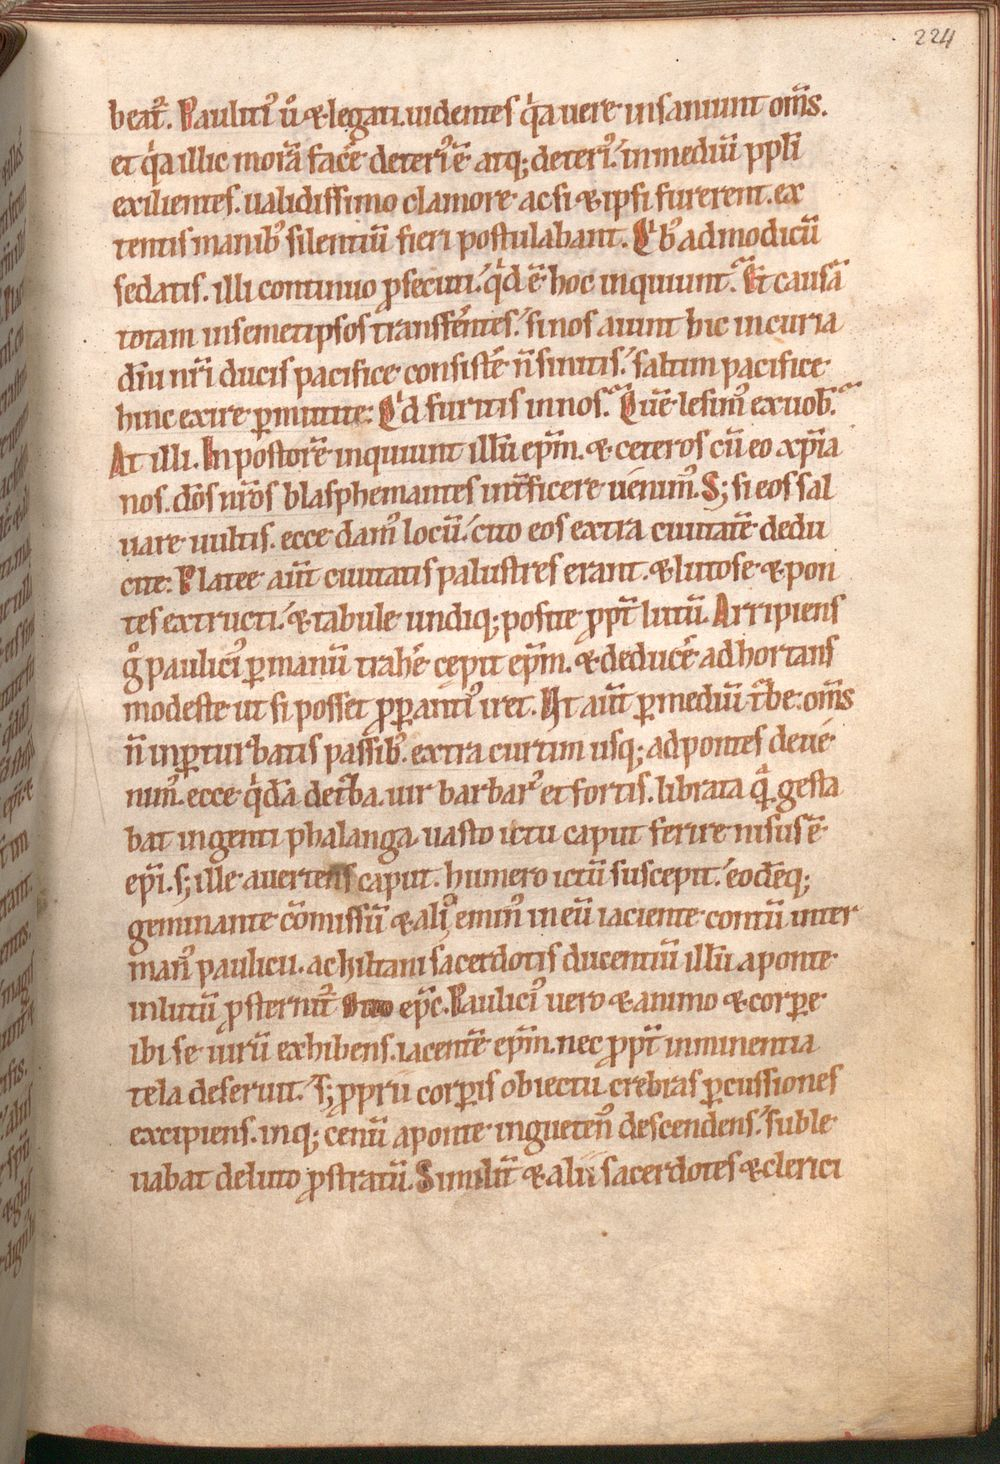 224
beat᷑. Pauliti᷒ u̾ & legati. uidentes q̍a uere insaniunt om̅s.
et q̍a illic morā facē deteri᷒ ē atq; deteri᷒. in mediū ppl̅i
exilientes. ualidissimo clamore ac si & ipsi furerent. ex
tentis manib᷒ silentiū fieri postulabant. Q̍b᷒ ad modicū
sedatis. illi continuo ꝓsecuti. q̍d ē hoc inquiunt. Et causā
totam in semetipsos transferētes. si nos aiunt hic in curia
dn̅i nr̅i ducis pacifice consistē n̅ sinitis. saltim pacifice
hinc exire ꝑmittite: Q̍d furitis in nos. Quē lesim᷒ ex uob̅.
At illi. Inpostorē inquiunt illū ep̅m. & ceteros cū eo xp̅ia
nos. dōs nr̅os blasphemantes int̅ficere uenim᷒. S; si eos sal
uare uultis. ecce dam᷒ locū. cito eos extra ciuitatē dedu
cite: Platee aūt ciuitatis palustres erant. & lutose & pon
tes extructi. & tabule undiq; posite ꝓpt̅ lutū. Arripiens
gͦ paulici᷒ ꝑ manū trahē cepit ep̅m. & deducē adhortans
modeste ut si posset ꝓꝑanti᷒ iret. At aūt ꝑ mediū t̅be: om̅s
n̅ inꝑturbatis passib᷒. extra curtim usq; ad pontes deue
nim᷒. ecce q̍dā de t̅ba. uir barbar᷒ et fortis. librata q̄ gesta
bat ingenti phalanga uasto ictu caput ferire nisus ē
ep̅i. s; ille auertens caput. humero ictū suscepit. eodēq;
geminante cōmissū & ali᷒ emin᷒ in eū iaciente contū inter
man᷒ paulicii. ac hiltani sacerdotis ducentiū illū a ponte
in lutū ꝓsternit᷑ ep̅c. Paulici᷒ uero & animo & corꝑe
ibi se uirū exhibens. iacentē ep̅m. nec ꝓpt̅ inminentia
tela deseruit. S; ꝓprii corꝑis obiectu crebras ꝑcussiones
excipiens. inq; cenū a ponte ingueten᷒ descendens. suble
uabat de luto ꝓstratū. Similit̅ & alii sacerdotes & clerici